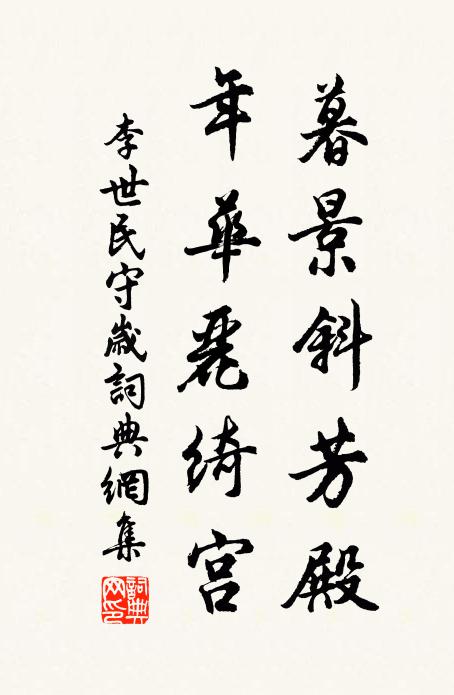 暮景斜芳殿
年華麗綺宮
李世民守歲詞典網集
詞典網印